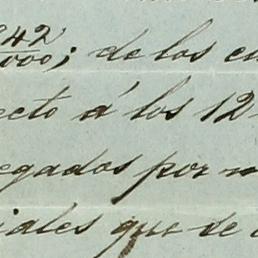 242/000; de los cu
ecto á los 12
egados por m
iales que se